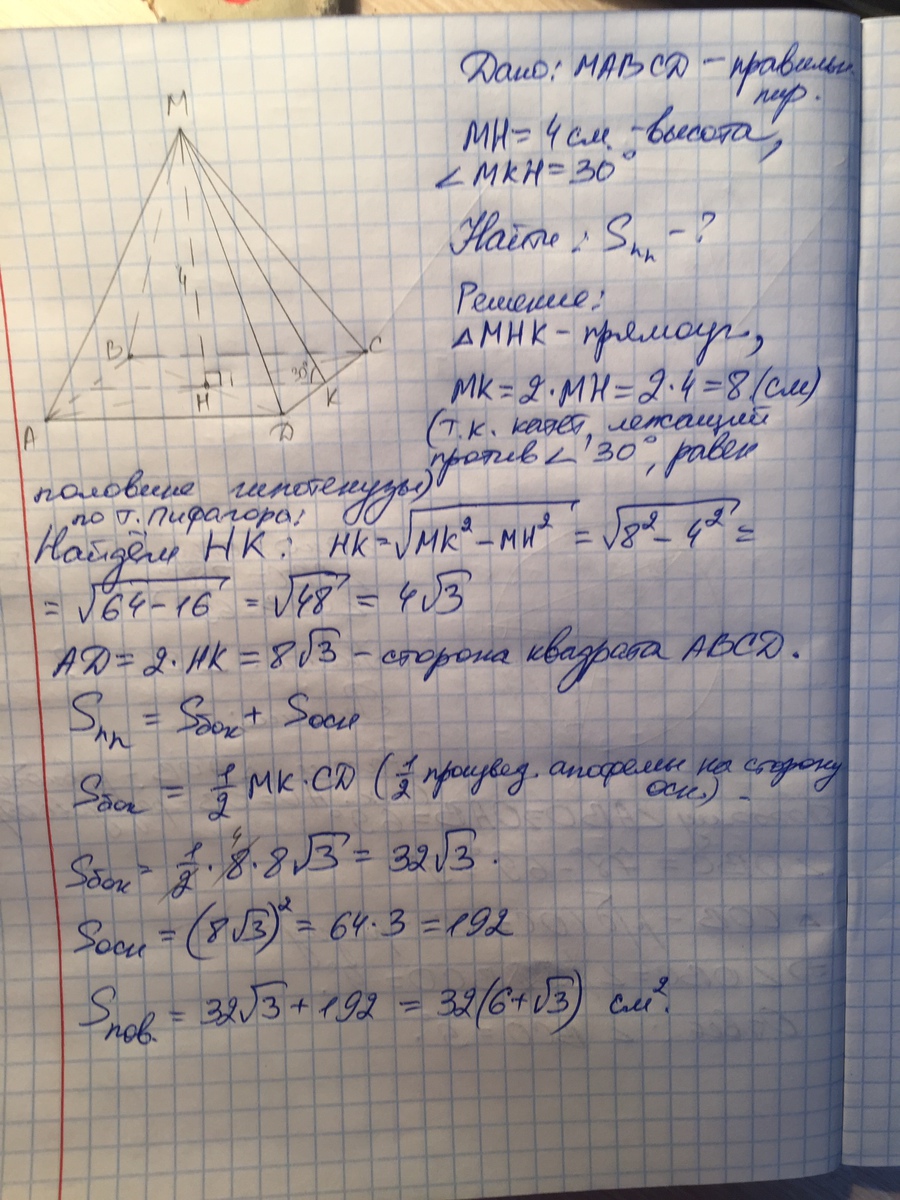 M
4
B
C
30°
H
K
A
D
Дано: MABCD – правильн.
пир.
MH = 4 см. – высота,
∠MKH = 30°
Найти: Sпп – ?
Решение:
△MHK – прямоуг.,
MK = 2·MH = 2·4 = 8 (см)
(т.к. катет, лежащий
против ∠ 30°, равен
половине гипотенузы)
по т. Пифагора:
Найдём HK: HK = √(MK² – MH²) = √(8² – 4²) =
= √(64 – 16) = √48 = 4√3
AD = 2·HK = 8√3 – сторона квадрата ABCD.
Sпп = Sбок + Sосн
Sбок = 1/2 MK·CD (1/2 произвед. апофемы на сторону
осн.)
Sбок = 1/2 · 8 · 8√3 = 32√3.
4
Sосн = (8√3)² = 64·3 = 192
Sпов. = 32√3 + 192 = 32(6+√3) см².